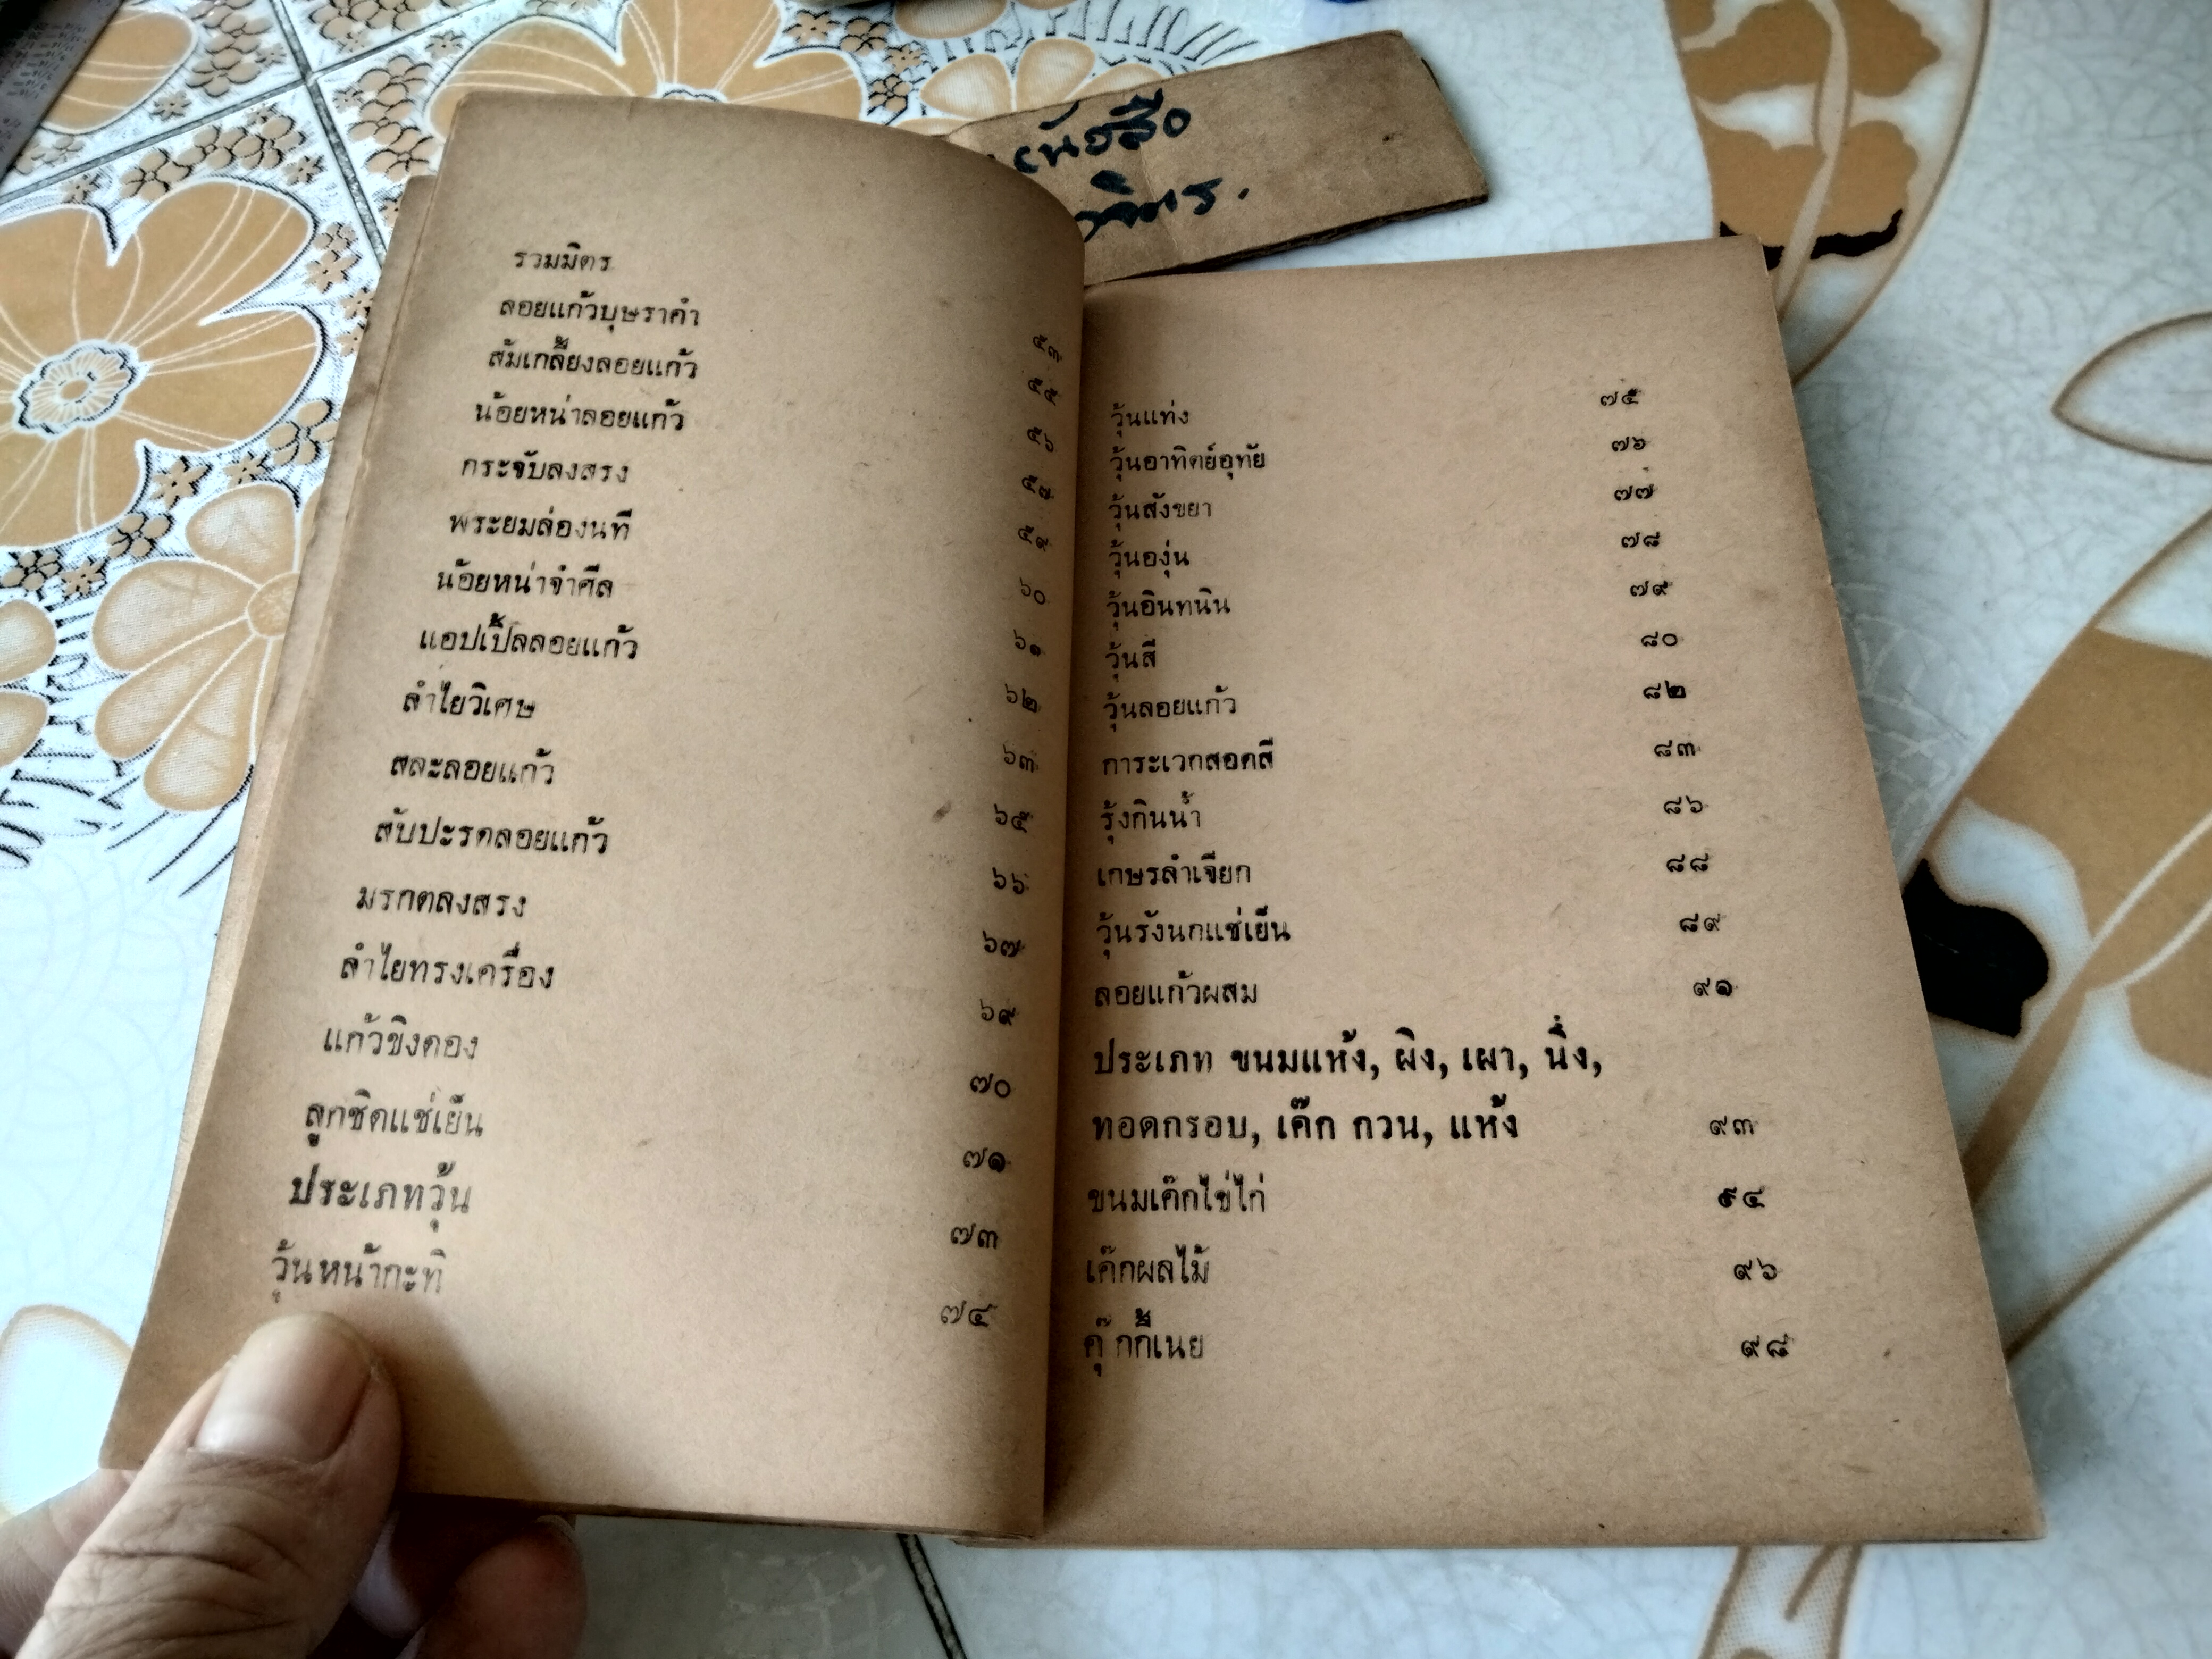 รวมมิตร ๕๓
ลอยแก้วบุษราคำ ๕๕
ส้มเกลี้ยงลอยแก้ว ๕๖
น้อยหน่าลอยแก้ว ๕๘
กระจับลงสรง ๕๙
พระยมล่องนที ๖๐
น้อยหน่าจำศีล ๖๑
แอปเปิ้ลลอยแก้ว ๖๒
ลำไยวิเศษ ๖๓
สละลอยแก้ว ๖๕
สับปะรดลอยแก้ว ๖๖
มรกตลงสรง ๖๗
ลำไยทรงเครื่อง ๖๙
แก้วขิงดอง ๗๐
ลูกชิดแช่เย็น ๗๑
ประเภทวุ้น ๗๓
วุ้นหน้ากะทิ ๗๔
วุ้นแท่ง ๗๕
วุ้นอาทิตย์อุทัย ๗๖
วุ้นสังขยา ๗๗
วุ้นองุ่น ๗๘
วุ้นอินทนิน ๗๙
วุ้นสี ๘๐
วุ้นลอยแก้ว ๘๒
การะเวกสอดสี ๘๓
รุ้งกินน้ำ ๘๖
เกษรลำเจียก ๘๘
วุ้นรังนกแช่เย็น ๘๙
ลอยแก้วผสม ๙๑
ประเภท ขนมแห้ง, ผิง, เผา, นึ่ง,
ทอดกรอบ, เค๊ก กวน, แห้ง ๙๓
ขนมเค๊กไข่ไก่ ๙๔
เค๊กผลไม้ ๙๖
คุ๊กกี้เนย ๙๘